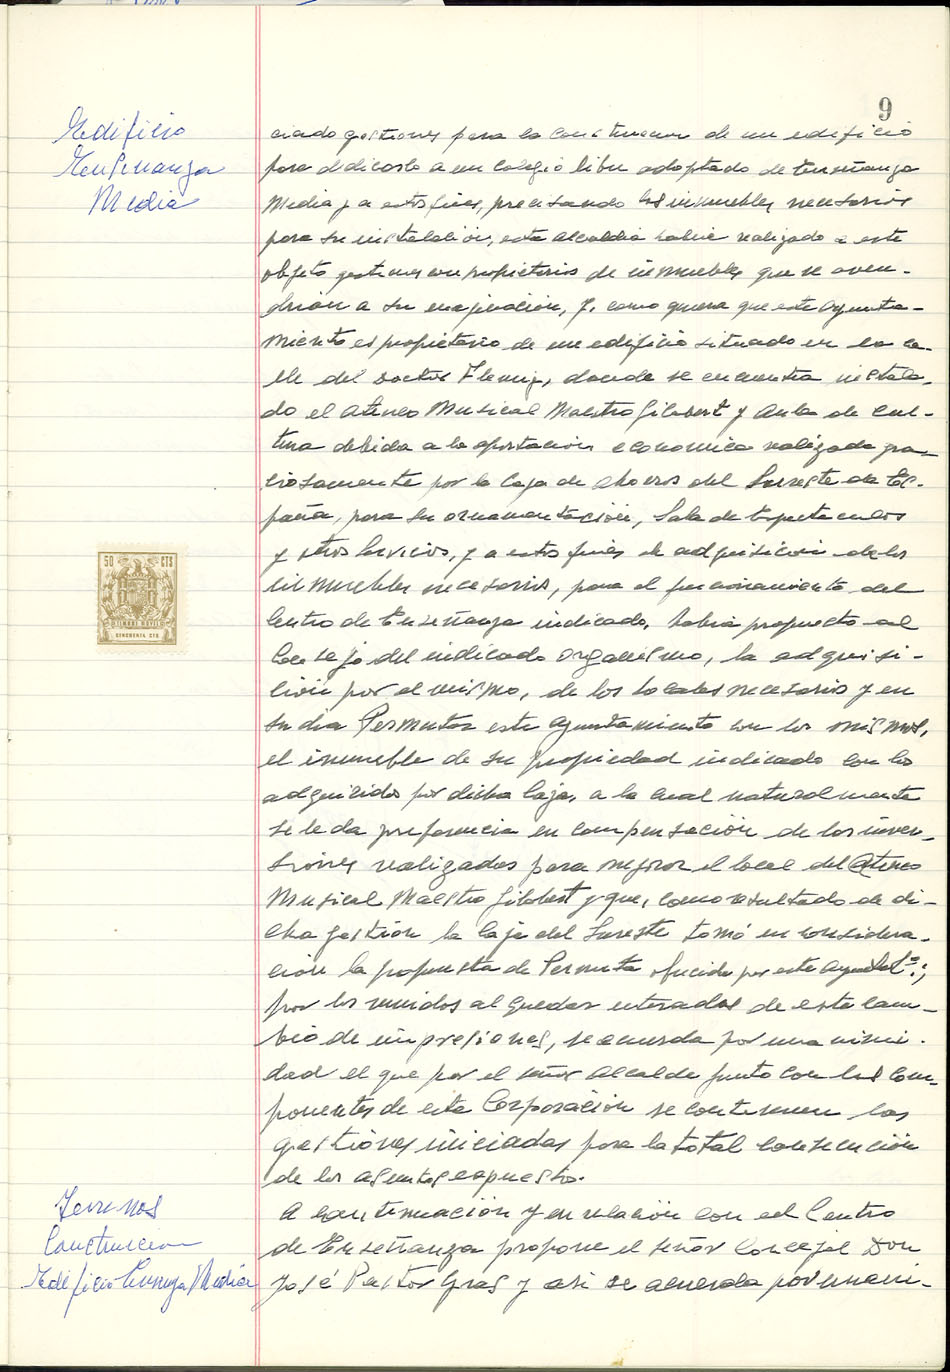 9
Edificio
Enseñanza
Media
ciado gestiones para la construccion de un edificio
para ddicarlo a un colegio libre adoptado de Enseñanza
Media y a estos fines, precisando los inmuebles necesarios
para su instalación, esta Alcaldia habia realizado a este
objeto gestiones con propietarios de inmuebles que se aven-
drian a su enajenación, y, como quiera que este Ayunta-
miento es propietario de un edificio situado en la ca-
lle del Doctor Fleming, donde se encuentra instala-
do el Ateneo Musical Maestro Gilabert y Aula de Cul-
tura debida a la aportación economica realizada gra-
ciosamente por la Caja de Ahorros del Sureste de Es-
paña, para su ornamentación, Sala de Espectaculos
y otros Servicios, y a estos fines de adquisicion de los
inmuebles necesarios, para el funcionamiento del
Centro de Enseñanza indicado, habia propuesto al
Consejo del indicado Organismo, la adquisi-
ción por el mismo, de los locales necesarios y en
su dia Permutar este Ayuntamiento con los mismos,
el inmueble de su propiedad indicado con los
adquiridos por dicha Caja, a la cual naturalmente
se le da preferencia en compensación de las inver-
siones realizadas para mejorar el local del Ateneo
Musical Maestro Gilabert y que, como resultado de di-
cha gestión la Caja del Sureste tomó en considera-
ción la propuesta de Permuta ofrecida por este Ayuntº.;
por los reunidos al quedar enterados de este cam-
bio de impresiones, se acuerda por unanimi-
dad el que por el señor Alcalde junto con los Com-
ponentes de esta Corporación se continuen las
gestiones iniciadas para la total consecución
de los asuntos expuesto.
50 CTS
TIMBRE MOVIL
CINCUENTA CTS
Terrenos
Construccion
Edificio Enseñza Media
A continuación y en relación con el Centro
de Enseñanza propone el señor Concejal Don
José Pastor Gras y asi se acuerda por unani-